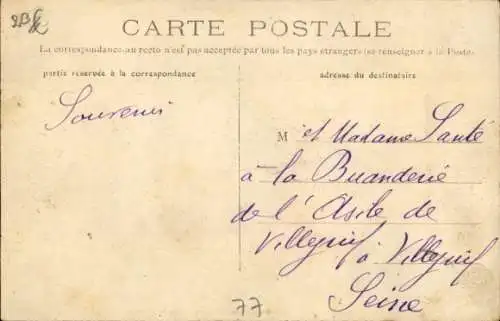 CARTE POSTALE
La correspondance au recto n'est pas acceptée par tous les pays étrangers (se renseigner à la Poste)
partie réservée à la correspondance
adresse du destinataire
Souvenir
M et Madame Santé
à la Buanderie
de l'Asile de
Villejuif à Villejuif
Seine
77